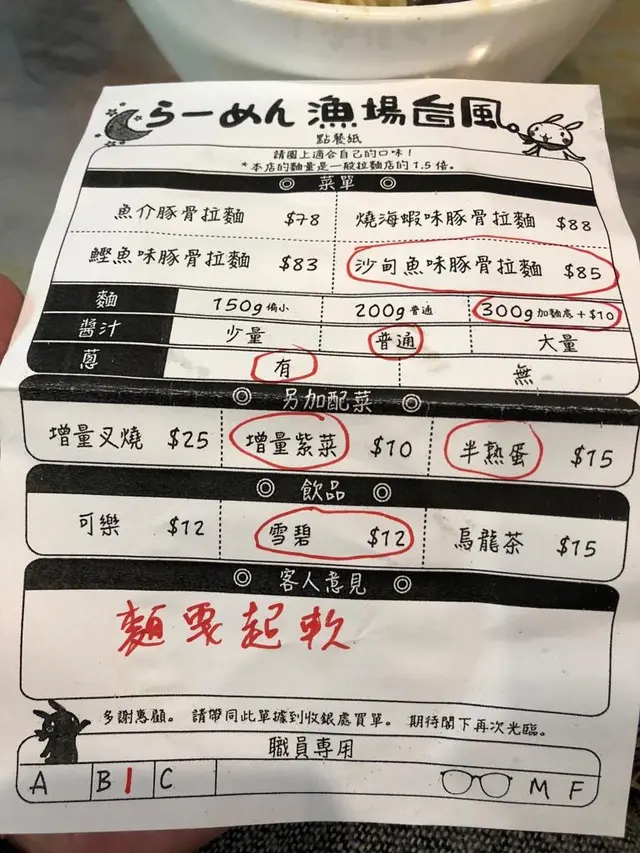 らーめん 漁場台風
點餐紙
請圈上適合自己的口味！
*本店的麵量是一般拉麵店的1.5倍。
◎ 菜單 ◎
魚介豚骨拉麵 $78 燒海蝦味豚骨拉麵 $88
鰹魚味豚骨拉麵 $83 沙甸魚味豚骨拉麵 $85
麵 150g 偏小 200g 普通 300g 加麵底 +$10
醬汁 少量 普通 大量
蔥 有 無
◎ 另加配菜 ◎
增量叉燒 $25 增量紫菜 $10 半熟蛋 $15
◎ 飲品 ◎
可樂 $12 雪碧 $12 烏龍茶 $15
◎ 客人意見 ◎
麵要起軟
多謝惠顧。 請帶同此單據到收銀處買單。 期待閣下再次光臨。
職員專用
A B | C M F